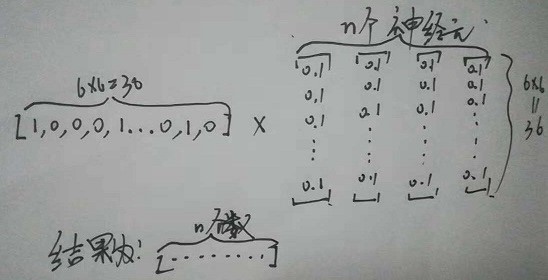 n个神经元
6×6=36
[1,0,0,0,1...0,1,0] × 
0.1 0.1 0.1 0.1
0.1 0.1 0.1 0.1
0.1 0.1 0.1 0.1
0.1 0.1 0.1 0.1
6×6
=
36
n个数
结果为: [........]